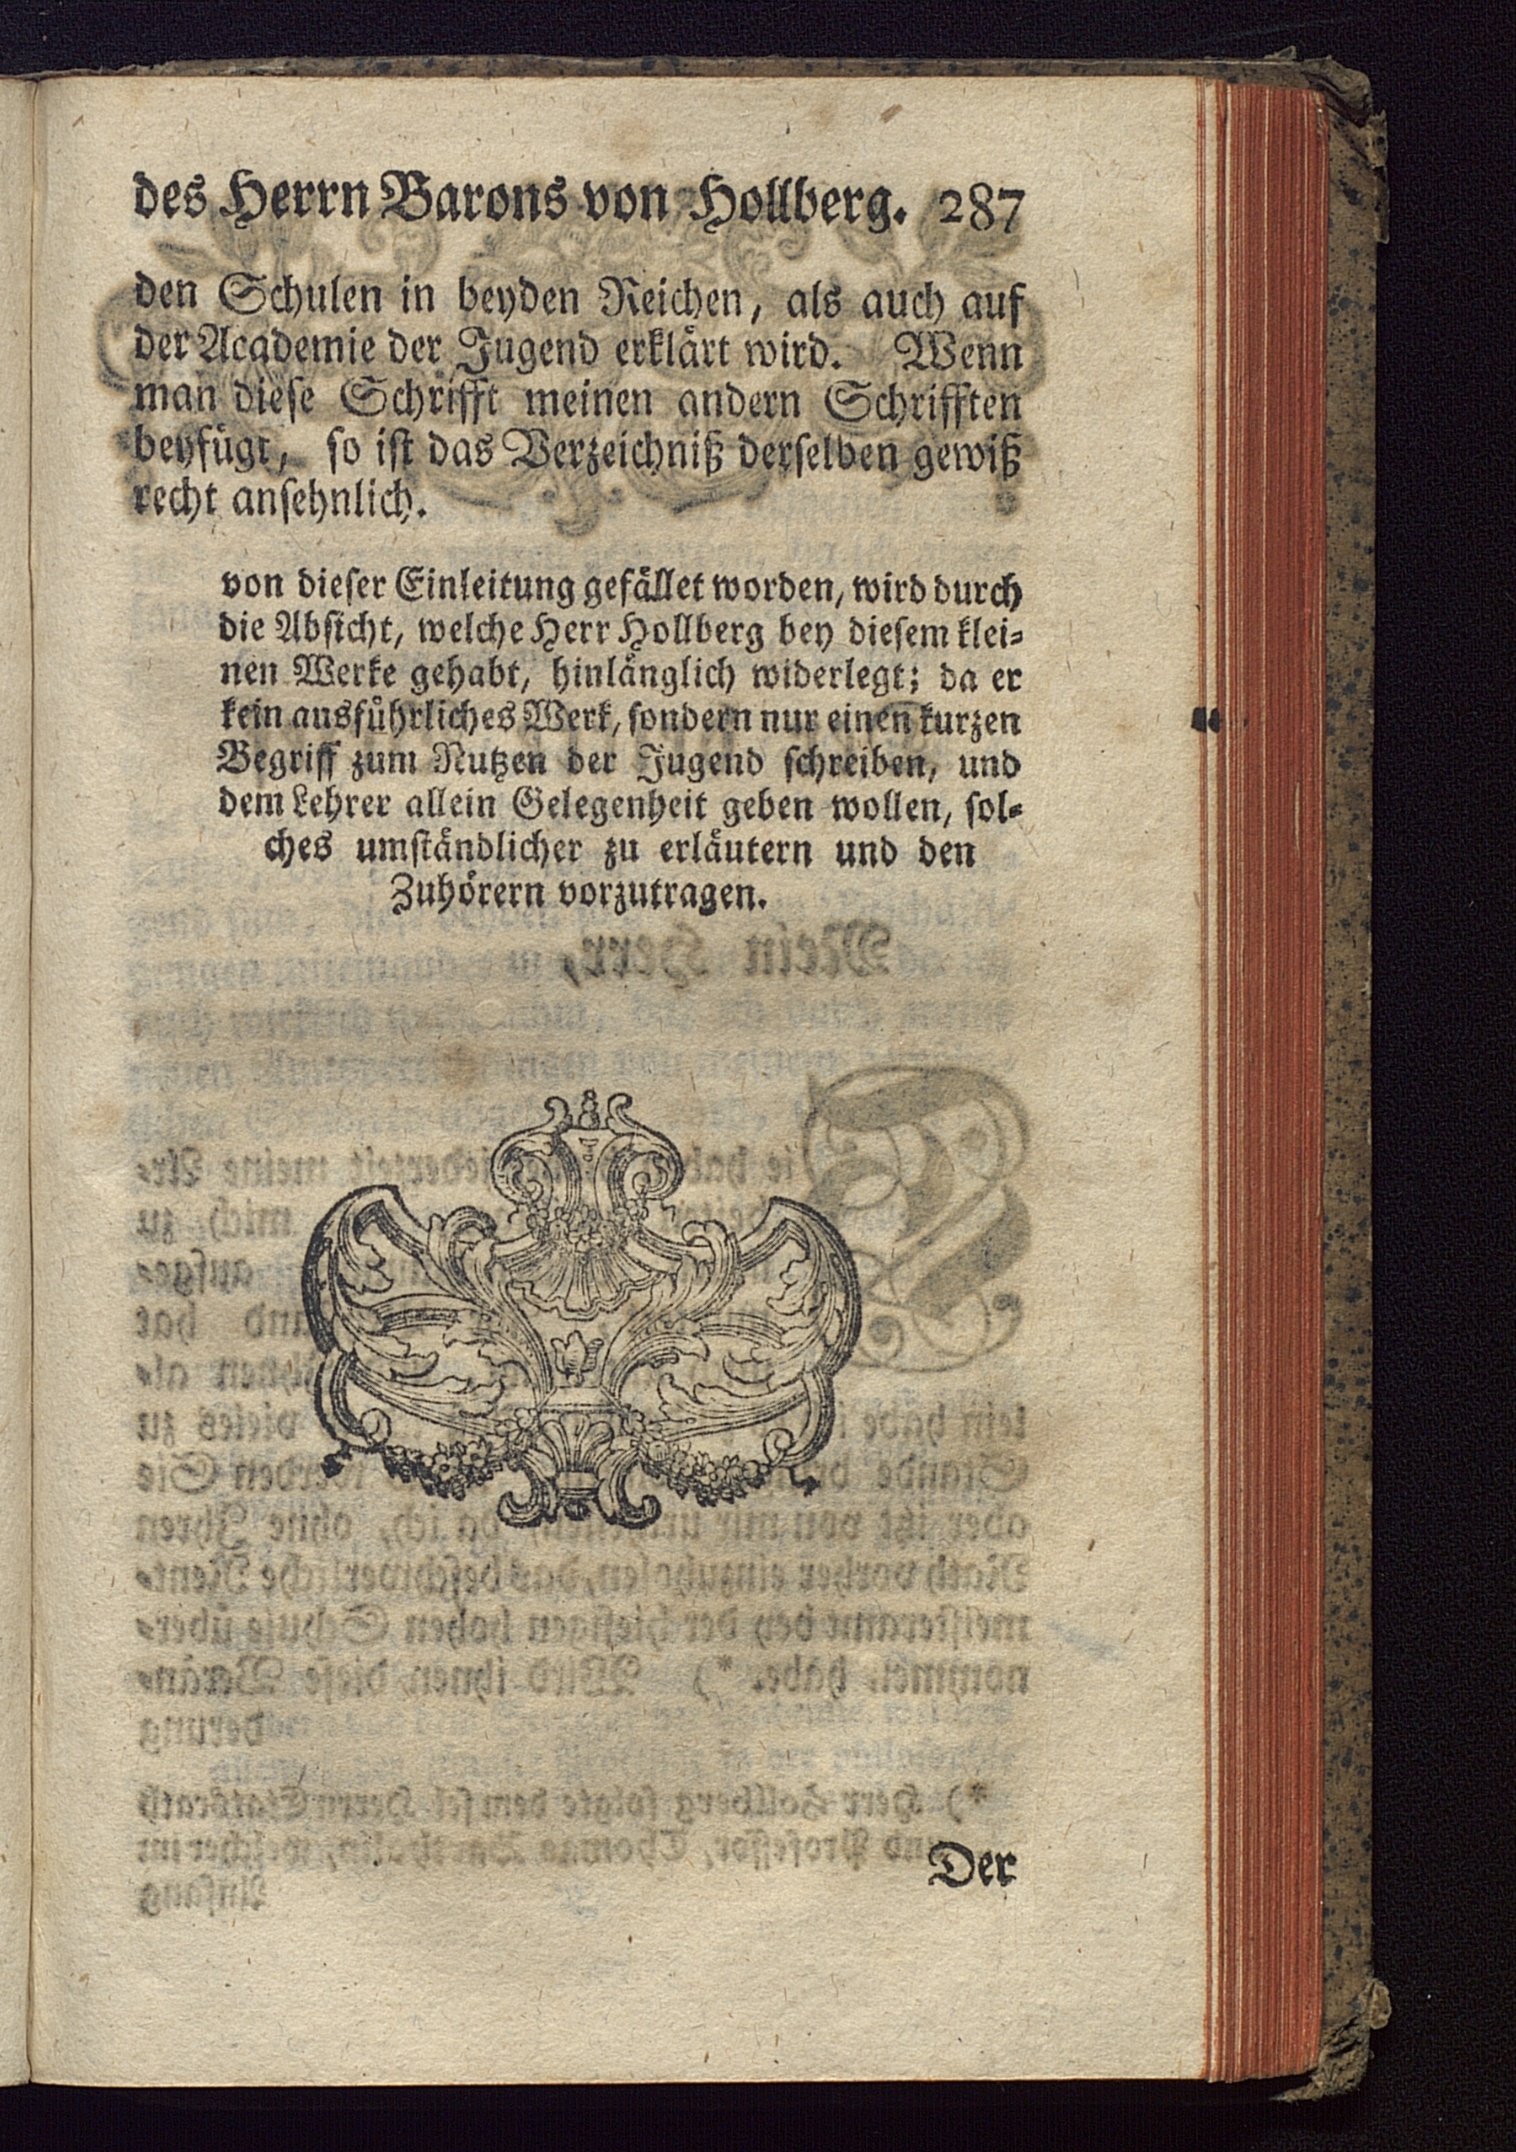 des Herrn Barons von Hollberg. 287
den Schulen in beyden Reichen, als auch auf
der Academie der Jugend erklärt wird. Wenn
man diese Schrifft meinen andern Schrifften
beyfügt, so ist das Verzeichniß derselben gewiß
recht ansehnlich.
von dieser Einleitung gefället worden, wird durch
die Absicht, welche Herr Hollberg bey diesem klei-
nen Werke gehabt, hinlänglich widerlegt; da er
kein ausführliches Werk, sondern nur einen kurzen
Begriff zum Nutzen der Jugend schreiben, und
dem Lehrer allein Gelegenheit geben wollen, sol-
ches umständlicher zu erläutern und den
Zuhörern vorzutragen.
Der